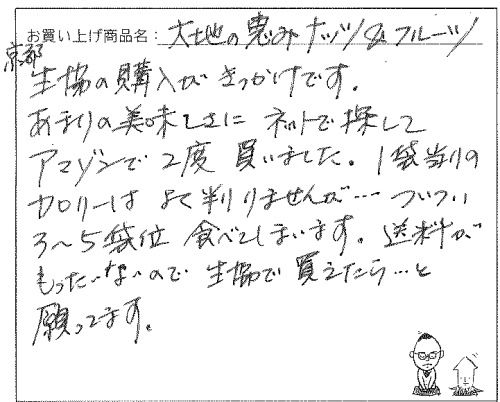 お買い上げ商品名: 大地の恵みナッツ&フルーツ
京都
生協の購入がきっかけです。
あまりの美味しさにネットで探して
アマゾンで2度買いました。1袋当りの
カロリーはよく判りませんが…ついつい
3〜5袋位食べてしまいます。送料が
もったいないので生協で買えたら…と
願ってます。